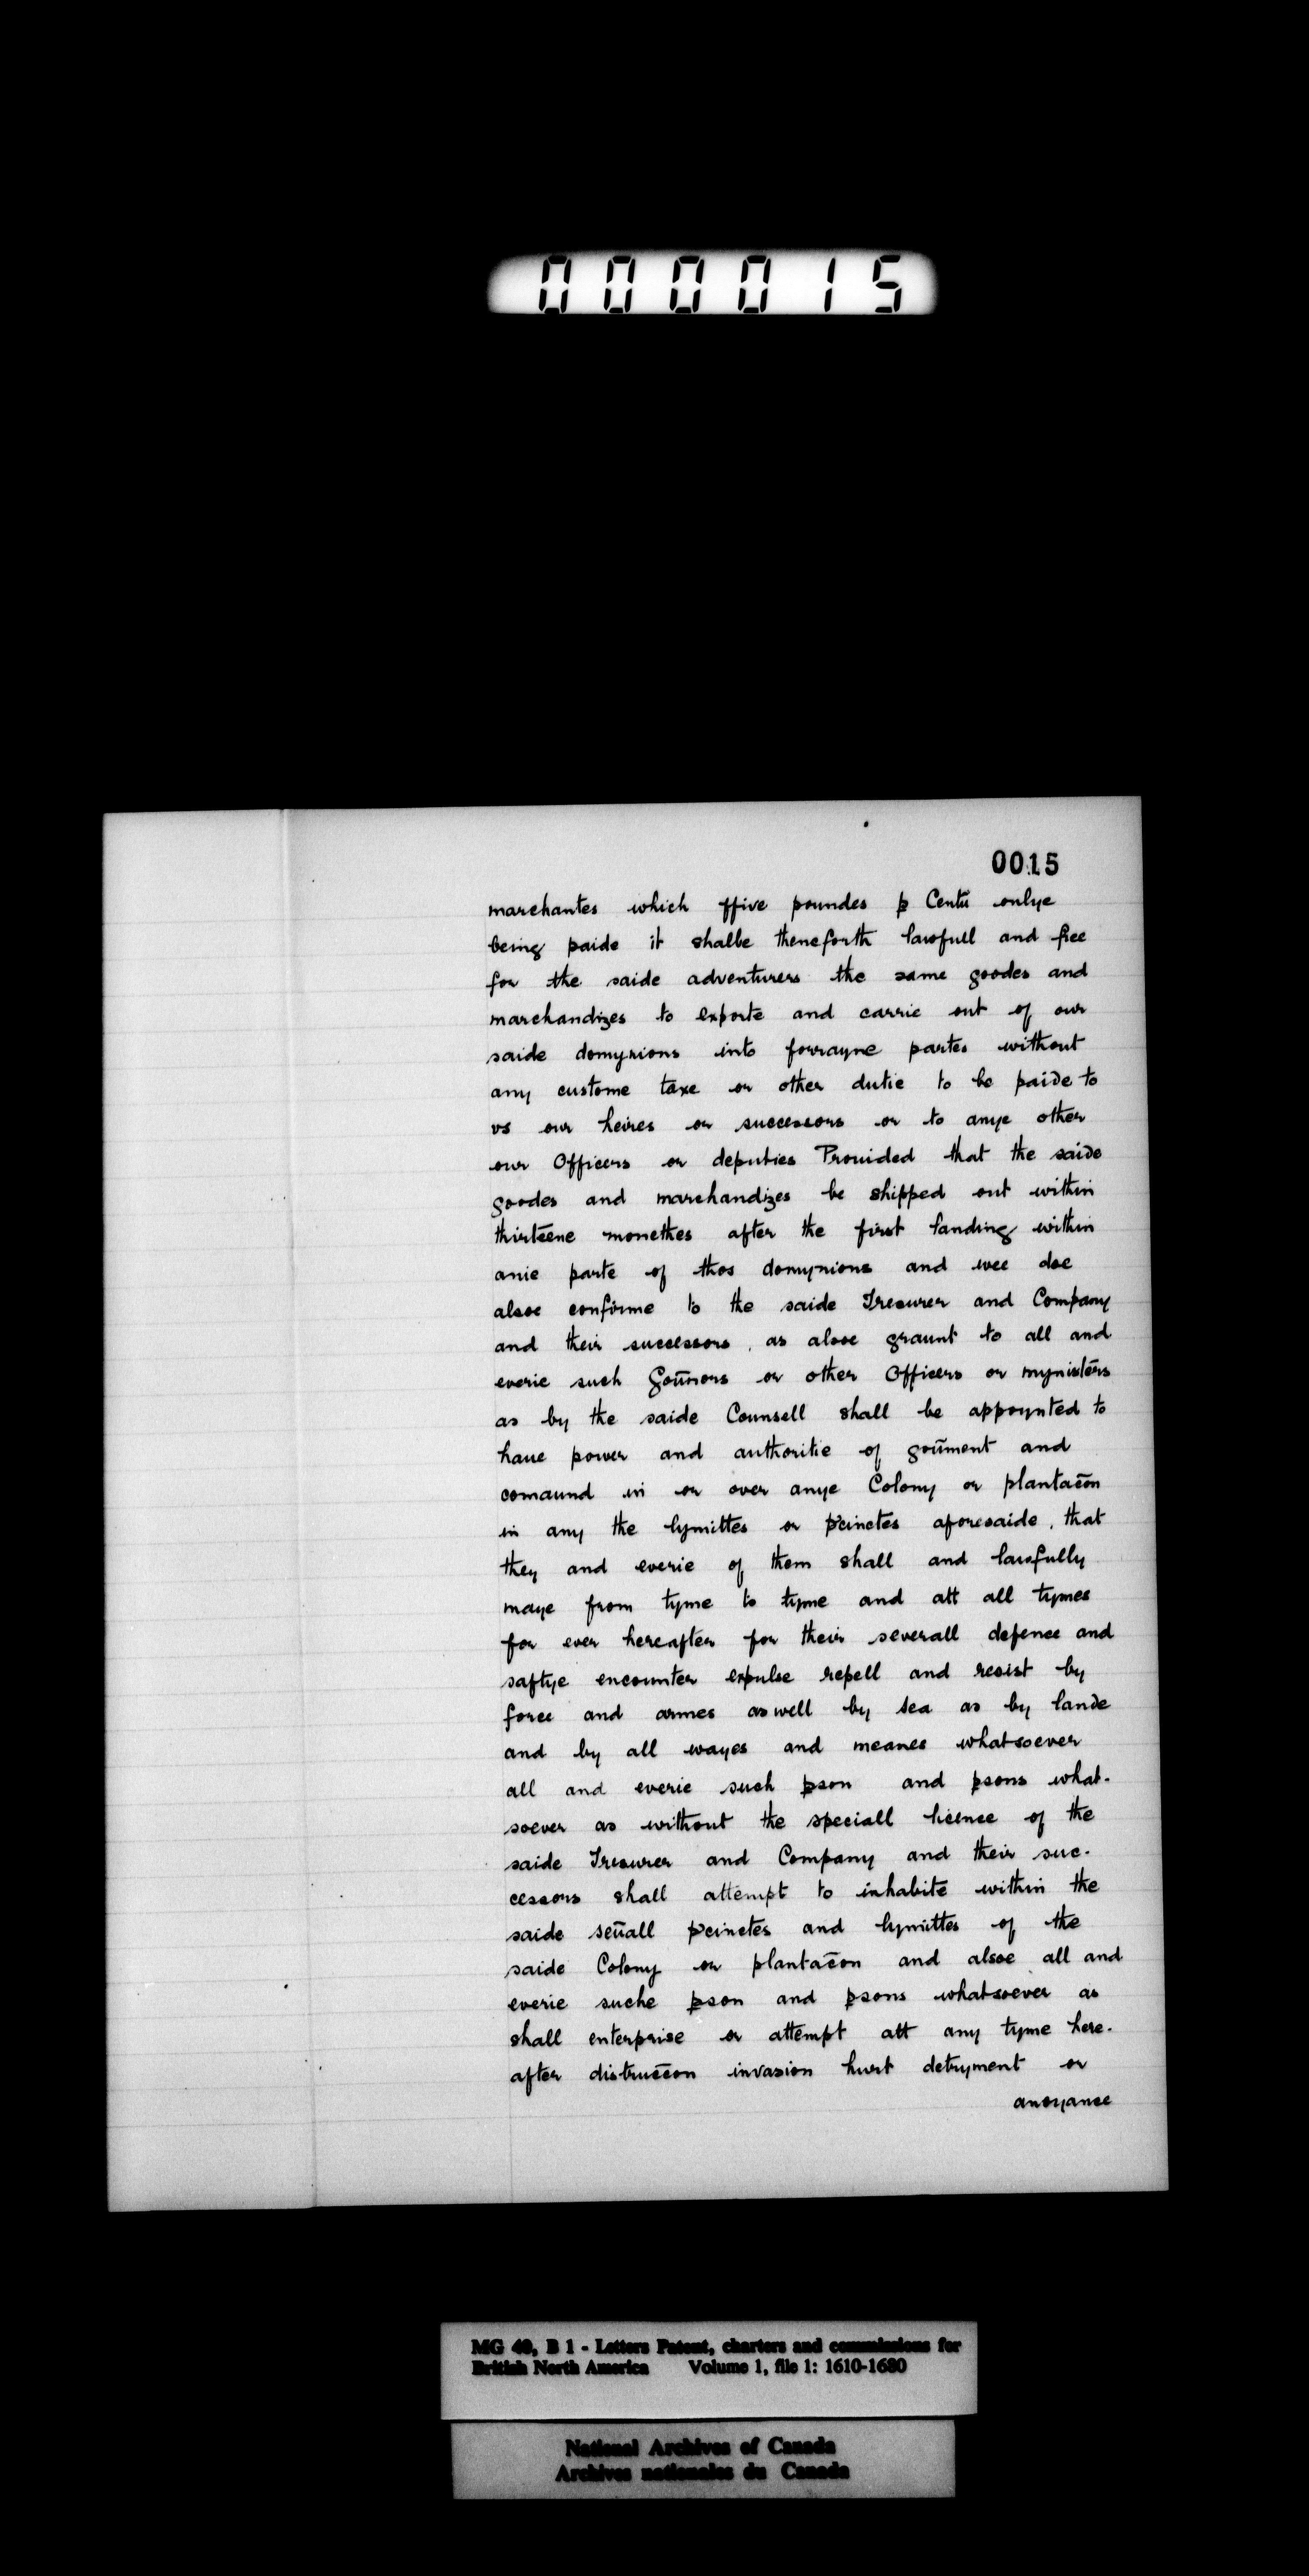 000015
0015
marchantes which ffive poundes ꝑ Centū onlye
being paide it shalbe theneforth lawfull and free
for the saide adventurers the same goodes and
marchandizes to exporte and carrie out of our
saide domynions into forrayne partes without
any custome taxe or other dutie to be paide to
vs our heires or successors or to anye other
our Officers or deputies Prouided that the saide
goodes and marchandizes be shipped out within
thirteene monethes after the first landing within
anie parte of thos domynions and wee doe
alsoe confirme to the saide Tresurer and Company
and their successors, as alsoe graunt to all and
everie such Goūnors or other Officers or mynisters
as by the saide Counsell shall be appoynted to
haue power and authoritie of goūment and
comaund in or over anye Colony or plantac̄on
in any the lymittes or pcinctes aforesaide, that
they and everie of them shall and lawfully
maye from tyme to tyme and att all tymes
for ever hereafter for their severall defence and
saftye encounter expulse repell and resist by
force and armes aswell by sea as by lande
and by all wayes and meanes whatsoever
all and everie such ꝑson and ꝑsons what-
soever as without the speciall licence of the
saide Tresurer and Company and their suc-
cessors shall attempt to inhabite within the
saide seūall pcinctes and lymittes of the
saide Colony or plantac̄on and alsoe all and
everie suche ꝑson and ꝑsons whatsoever as
shall enterprise or attempt att any tyme here-
after distrucc̄on invasion hurt detryment or
anoyance
MG 40, B 1 - Letters Patent, charters and commissions for
British North America Volume 1, file 1: 1610-1680
National Archives of Canada
Archives nationales du Canada